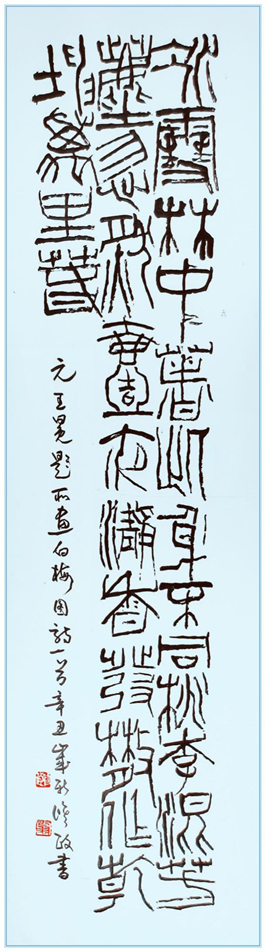 冰雪林中著此身不同桃李混芳
塵忽然壹夜清香發散作乾
坤萬里春
元王冕题所畫白梅图诗一首辛丑歲政書